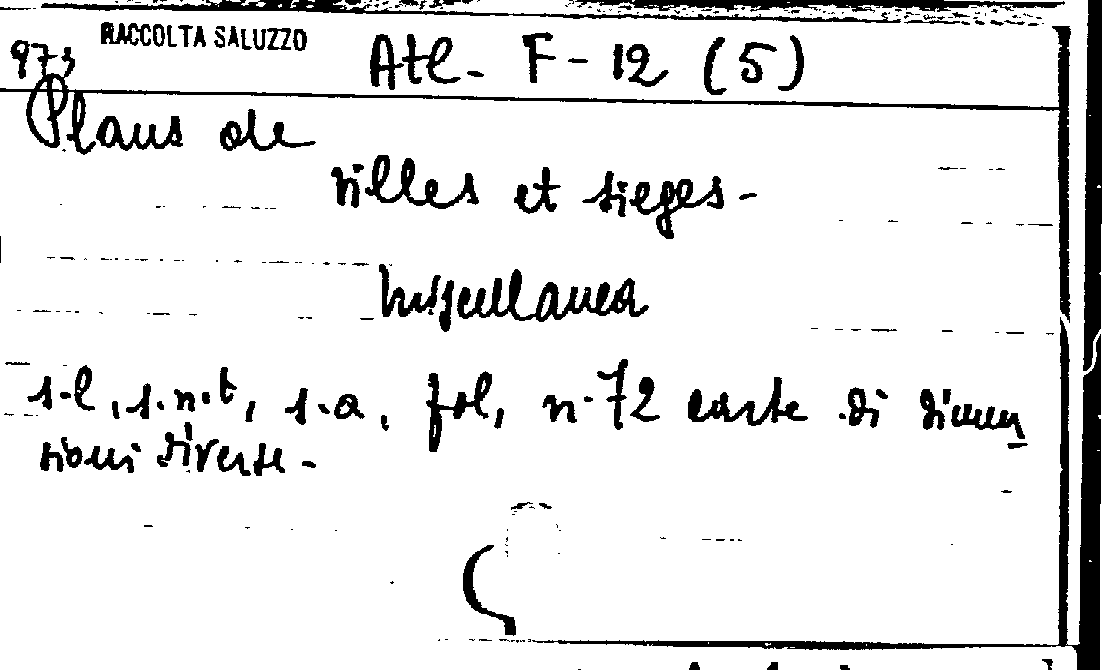 RACCOLTA SALUZZO
973 Atl- F-12 (5)
Plans de
villes et sieges-
Miscellanea
s.l, s.n.t, s.a, fol, n.72 carte di dimen
sioni diverse-